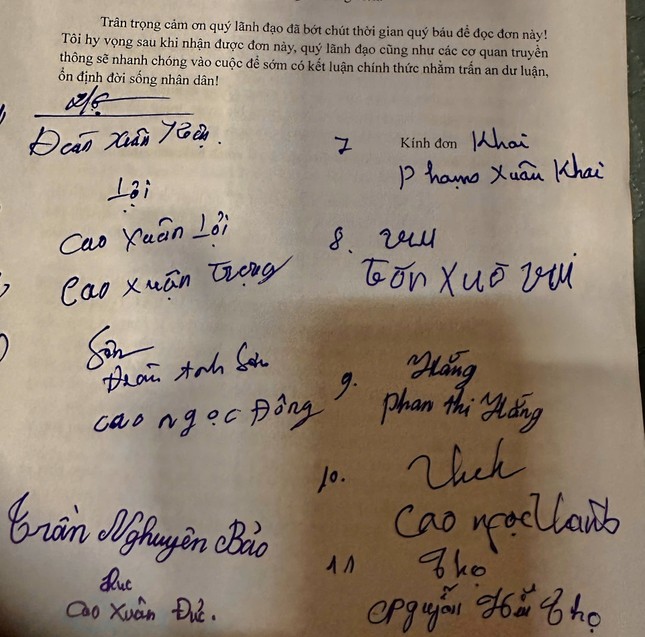 Trân trọng cảm ơn quý lãnh đạo đã bớt chút thời gian quý báu để đọc đơn này!
Tôi hy vọng sau khi nhận được đơn này, quý lãnh đạo cũng như các cơ quan truyền
thông sẽ nhanh chóng vào cuộc để sớm có kết luận chính thức nhằm trấn an dư luận,
ổn định đời sống nhân dân!
Xuân
Lợi
Cao Xuân Lợi
Cao Xuận Trọng
Sơn
Anh Sơn
Cao Ngọc Đông
Trần Nghuyên Bảo
Đức
Cao Xuân Đức.
7 Kính đơn Khai
Phamo Xuân Khai
8. Vui
Vui
9. Hằng
phan thi Hằng
10.
Cao ngọc
11 Thọ
Thọ